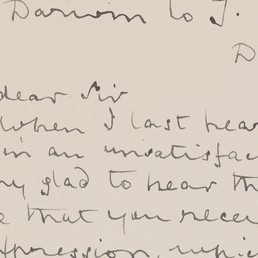 Darwin to J.
D
dear Sir
When I last hear
in an unsatisfac
ny glad to hear th
e that you recei
xpression, which